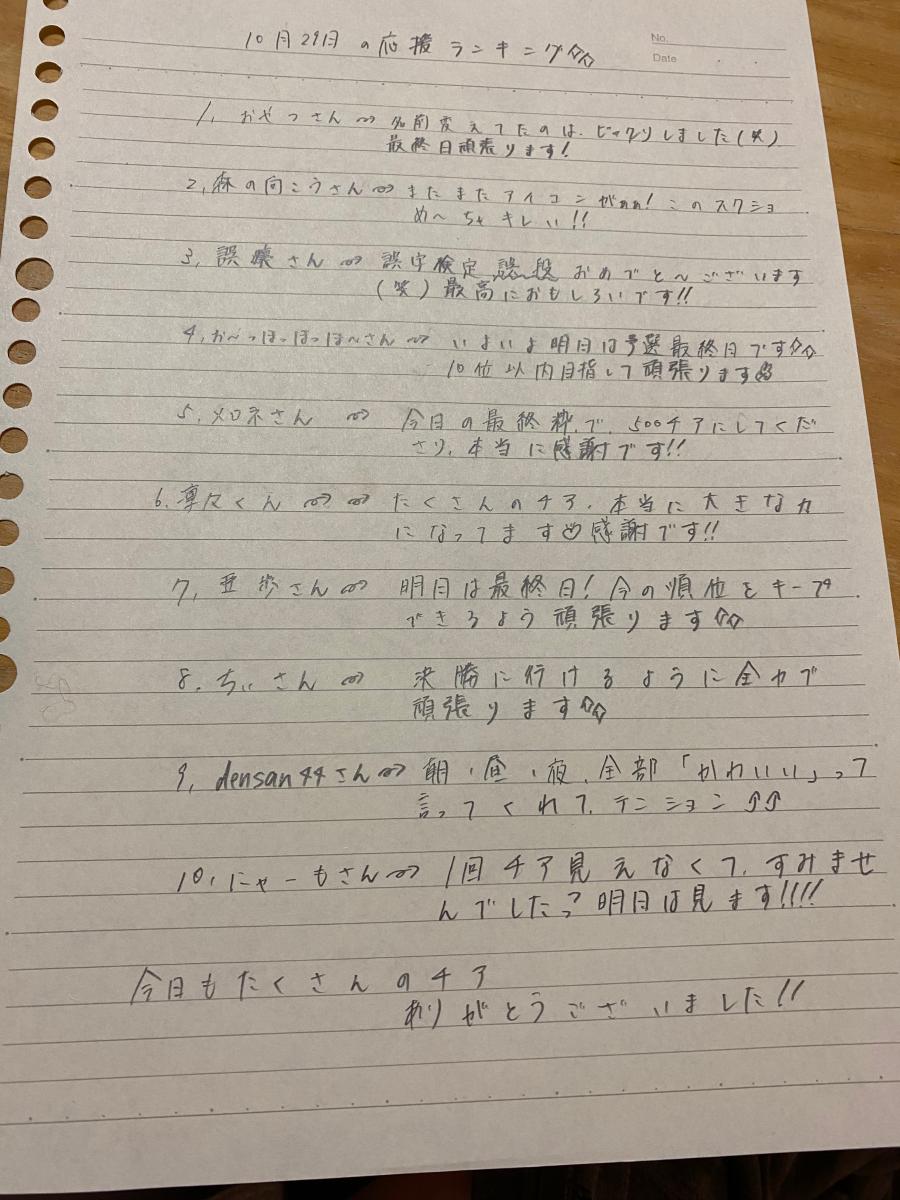 No.
Date
10月29日の応援ランキング☆☆
1, おやつさん⇨ 名前変えてたのは、ビックリしました(笑)
最終日頑張ります!
2, 森の向こうさん⇨ またまたアイコンがぁぁ! このスクショ
め〜ちゃキレい!!
3, 誤爆さん⇨ 誤字検定 誤段 おめでと〜ございます
(笑) 最高におもしろいです!!
4, お〜っほっほっほ〜さん⇨ いよいよ明日は予選最終日です☆☆
10位以内目指して頑張ります
5, メロネさん ⇨ 今日の最終枠で、500チアにしてくだ
さり、本当に感謝です!!
6, 凛々くん⇨ ⇨ たくさんのチア、本当に大きな力
になってます♡感謝です!!
7, 亜歩さん⇨ 明日は最終日! 今の順位をキープ
できるよう頑張ります☆☆
8, ちぃさん ⇨ 決勝に行けるように全力で
頑張ります☆☆
9, densan44さん⇨ 朝、昼、夜、全部「かわいい」って
言ってくれて、テンション⇧⇧
10, にゃーもさん⇨ 1回チア見えなくて、すみませ
んでしたっ 明日は見ます!!!!
今日もたくさんのチア
ありがとうございました!!